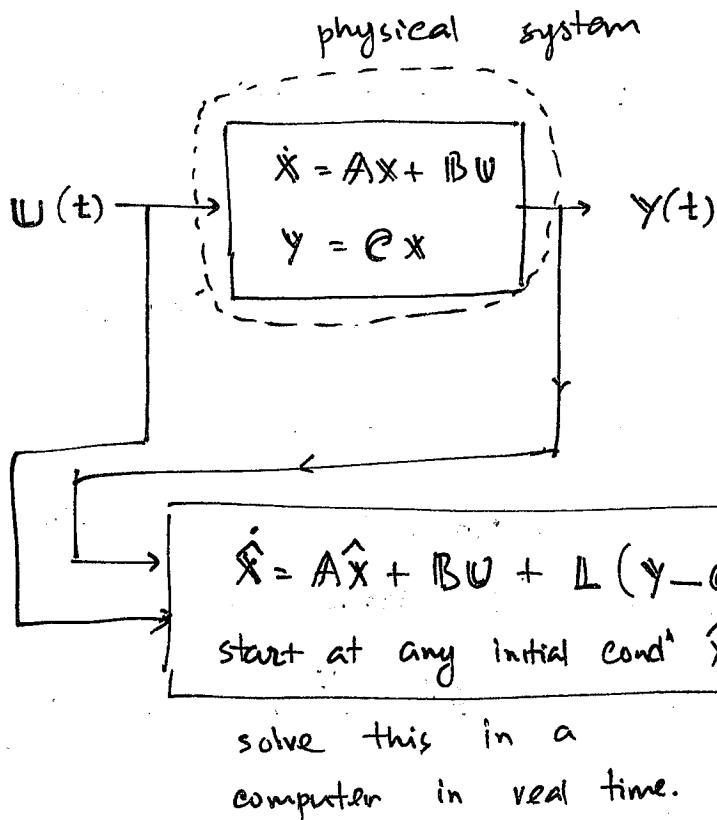 physical system
Ẋ = AX + BU
U(t)
Y(t)
Y = CX
X̂̇ = AX̂ + BU + L(Y-
start at any initial condⁿ
solve this in a
computer in real time.